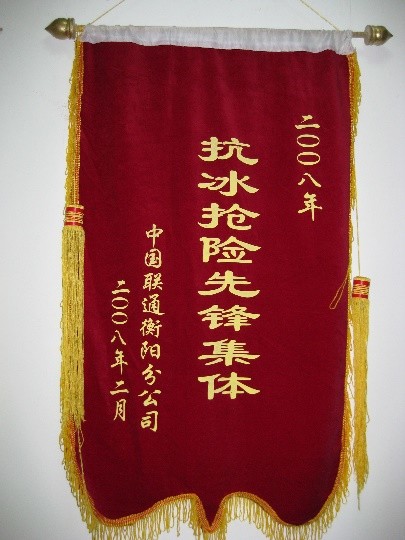 二〇〇八年
抗冰抢险先锋集体
中国联通衡阳分公司
二〇〇八年二月